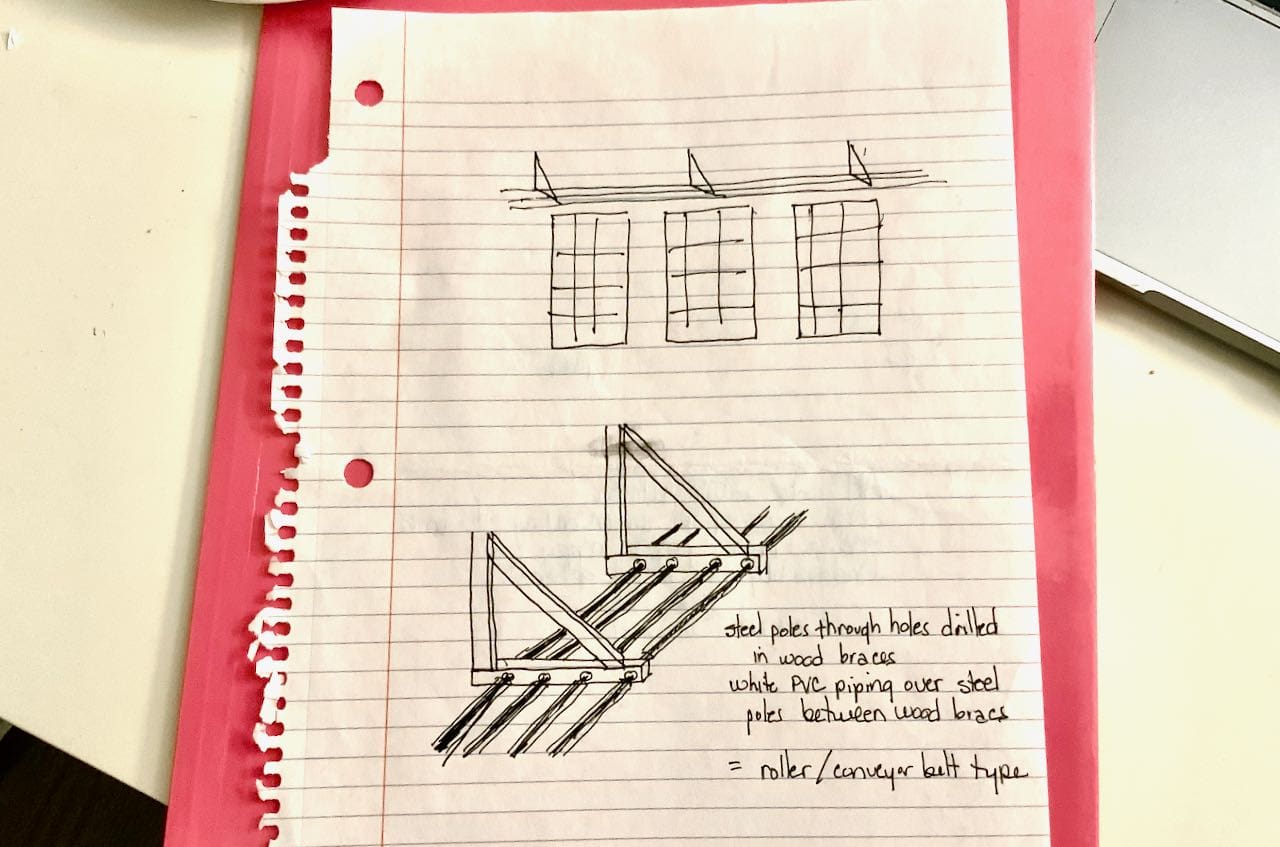 steel poles through holes drilled
in wood braces
white PVC piping over steel
poles between wood bracs
= roller/conveyor belt type